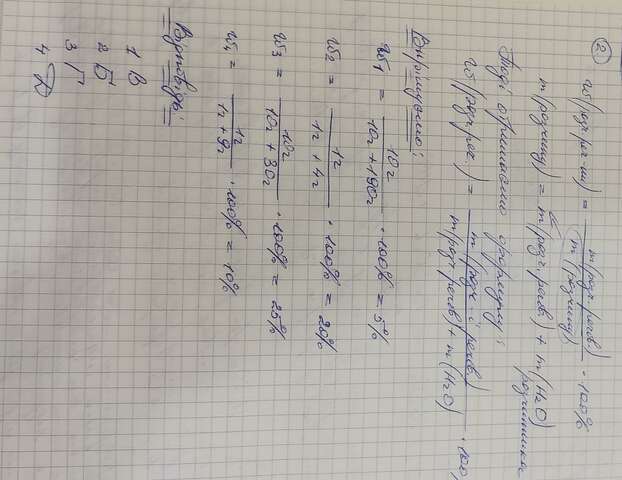 ②
w(розч. реч-ни) = m(розч. речов.) / m(розчину) · 100%
m(розчину) = m(розч. речов.) + m(H₂O)
розчинника
Тоді отримаємо формулу:
w(розч. реч.) = m(розч. речов.) / m(розч. речов.) + m(H₂O) · 100%
Вирішуємо:
w₁ = 10г / 10г + 190г · 100% = 5%
w₂ = 1г / 1г + 4г · 100% = 20%
w₃ = 10г / 10г + 30г · 100% = 25%
w₄ = 1г / 1г + 9г · 100% = 10%
Відповідь:
1 В
2 Б
3 Г
4 Д